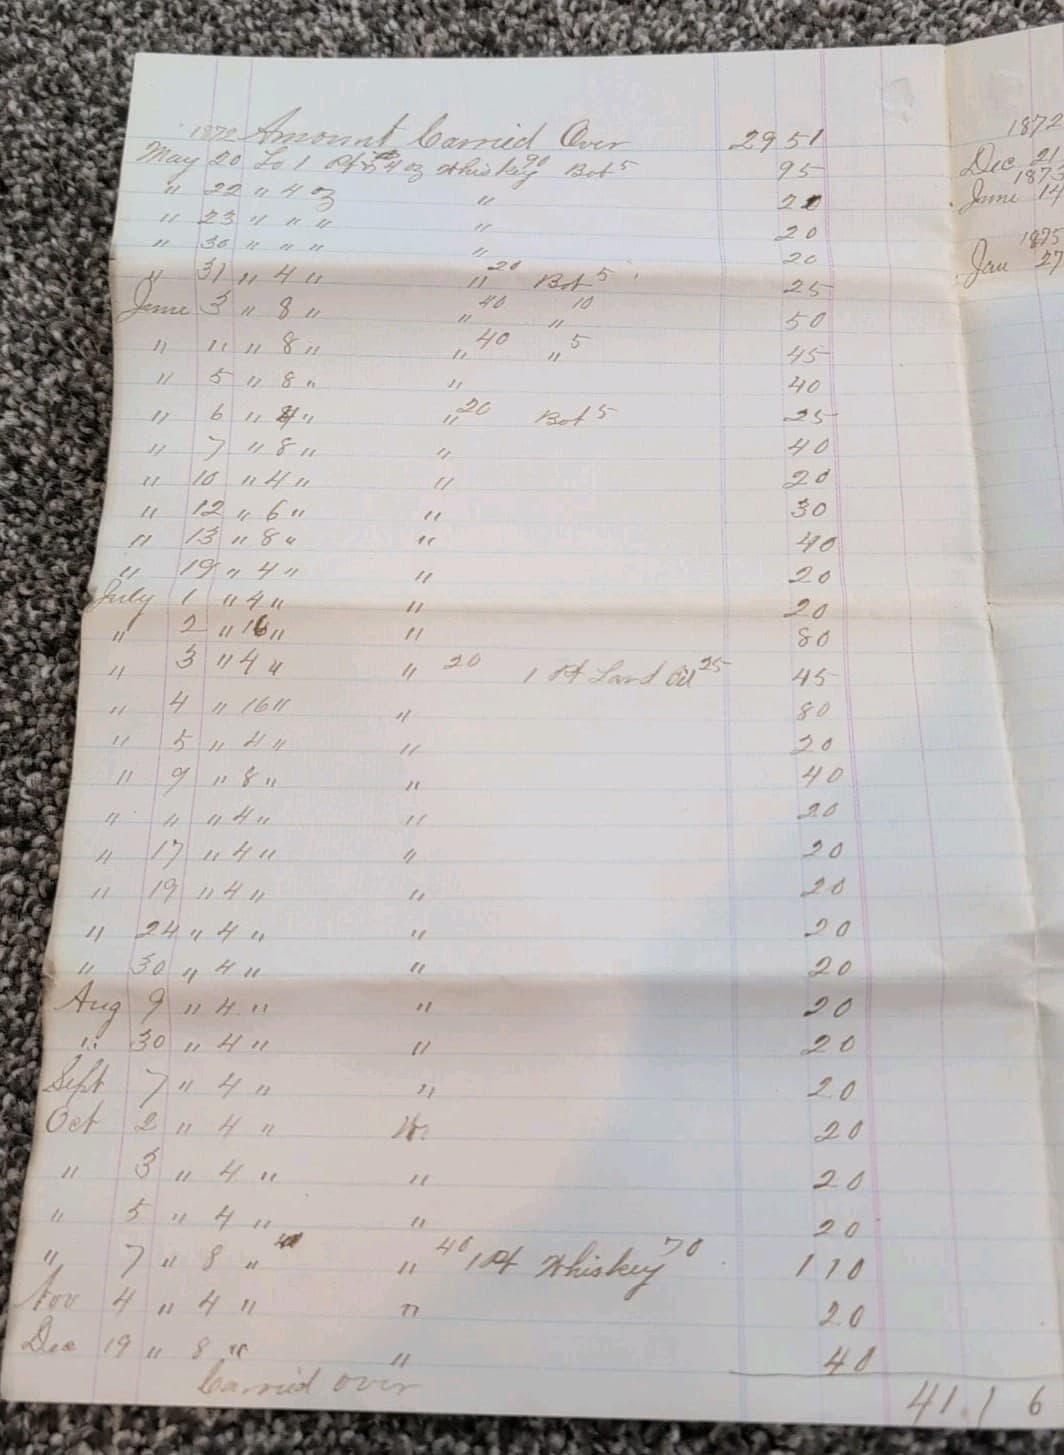 1872 Amount Carried Over 29 51
May 20 To 1 Pt & 4 oz Whiskey 90 Bot 5 95
" 22 " 4 oz " 20
" 23 " " " " 20
" 30 " " " " 20
" 31 " 4 " " 20 Bot 5 25
June 3 " 8 " " 40 " 10 50
" 11 " 8 " " 40 " 5 45
" 5 " 8 " " 40
" 6 " 4 " " 20 Bot 5 25
" 7 " 8 " " 40
" 10 " 4 " " 20
" 12 " 6 " " 30
" 13 " 8 " " 40
" 19 " 4 " " 20
July 1 " 4 " " 20
" 2 " 16 " " 80
" 3 " 4 " " 20 1 Pt Lard Oil 25 45
" 4 " 16 " " 80
" 5 " 4 " " 20
" 9 " 8 " " 40
" " " 4 " " 20
" 17 " 4 " " 20
" 19 " 4 " " 20
" 24 " 4 " " 20
" 30 " 4 " " 20
Aug 9 " 4 " " 20
" 30 " 4 " " 20
Sept 7 " 4 " " 20
Oct 2 " 4 " " 20
" 3 " 4 " " 20
" 5 " 4 " " 20
" 7 " 8 " " 40 1 Pt Whiskey 70 1 10
Nov 4 " 4 " " 20
Dec 19 " 8 " " 40
Carried over 41.16
1872
Dec 21
1873
June 14
1875
Jan 27